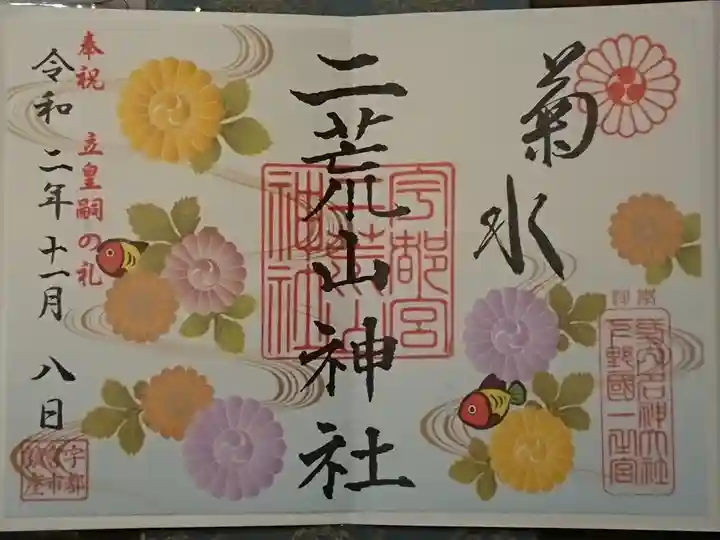 菊水
二荒山神社
宇都宮
二荒山
神社
奉祝 立皇嗣の礼
令和二年十一月 八日
下野國一之宮